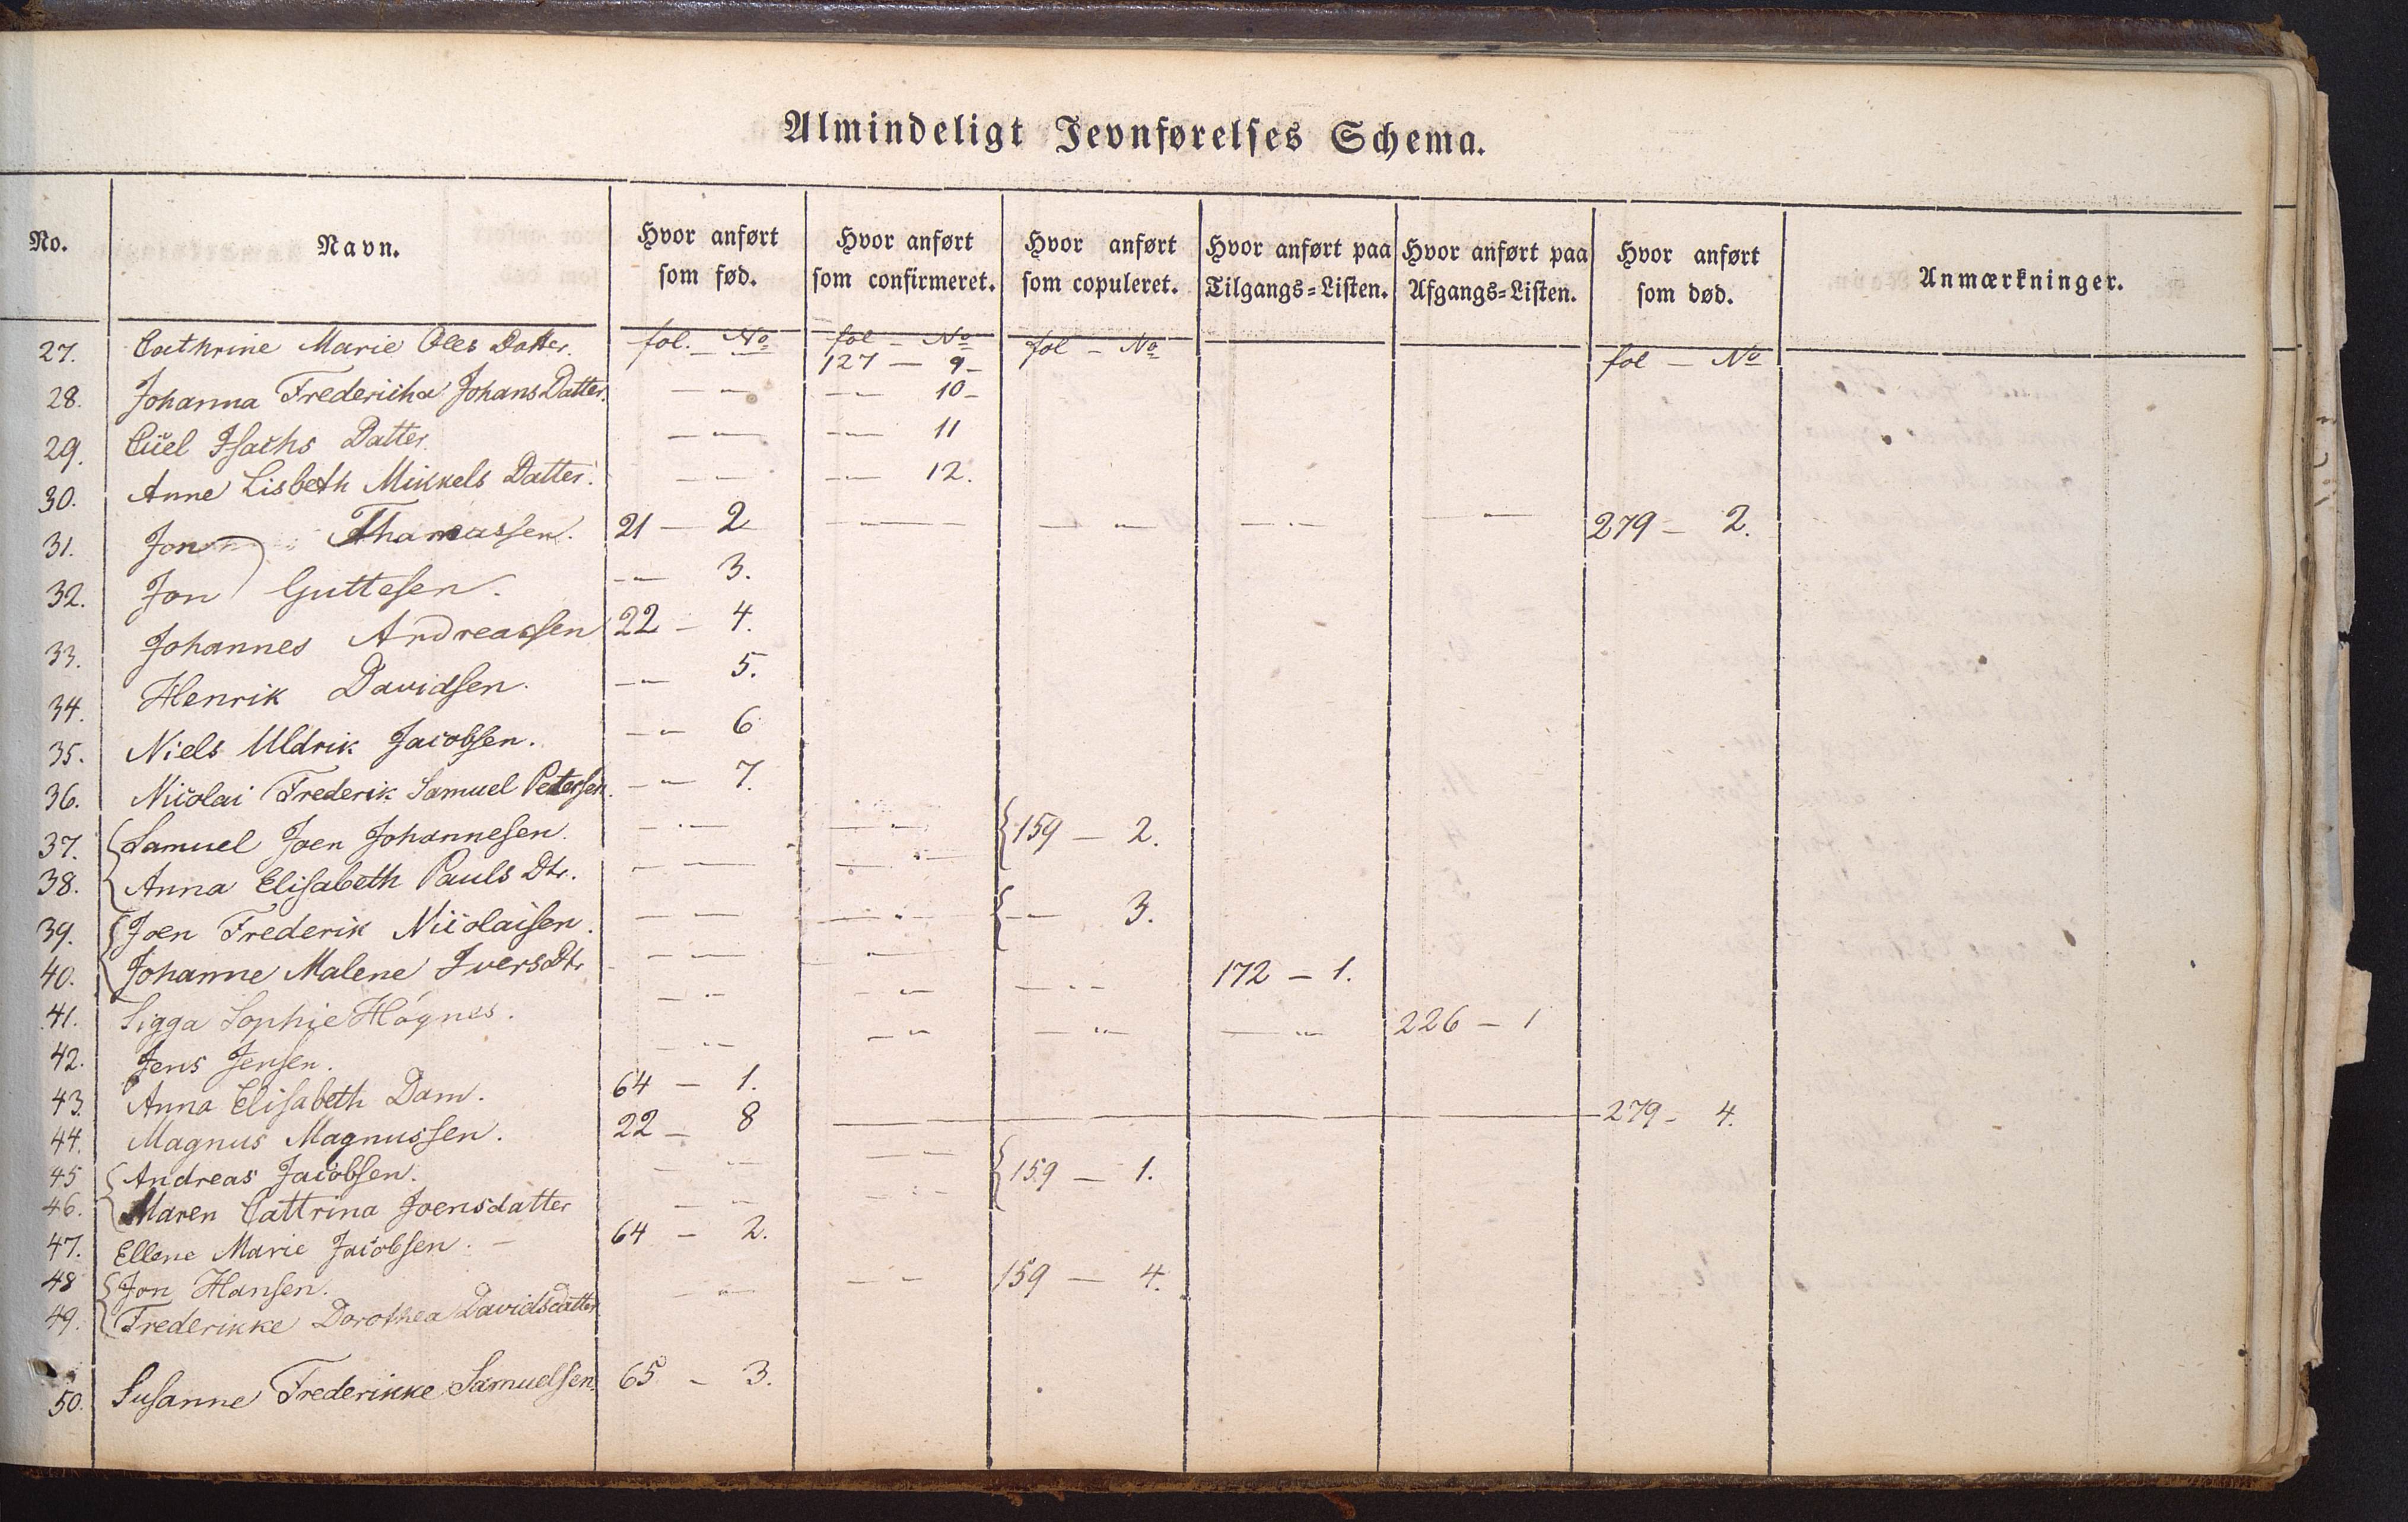 Almindeligt Jevnførelses Schema.
No. Navn. Hvor anført som fød. Hvor anført som confirmeret. Hvor anført som copuleret. Hvor anført paa Tilgangs=Listen. Hvor anført paa Afgangs=Listen. Hvor anført som død. Anmærkninger.
fol. — No fol — No fol — No fol — No
27. Cathrine Marie Oles Datter. 127 — 9 —
28. Johanna Fredericha Johans Datter. — — — — 10 —
29. Isachs Datter. — — — — 11
30. Anne Lisbeth Mikkels Datter. — — — — 12.
31. Jon Thomassen. 21 — 2 — — — — — — — — 279 — 2.
32. Jon Guttesen. — — 3.
33. Johannes Andreassen 22 — 4.
34. Henrik Davidsen. — — 5.
35. Niels Uldrik Jacobsen. — — 6
36. Nicolai Frederik Samuel Petersen. — — 7.
37. { Samuel Joen Johannesen. — — — — { 159 — 2.
38. Anna Elisabeth Pauls Dtr. — — — —
39. { Joen Frederik Nicolaisen. — — — — { — — 3.
40. Johanne Malene Ivers Dtr. — — — —
41. Sigga Sophie Høgnes. — — — — — — 172 — 1.
42. Jens Jensen. — — — — — — — — 226 — 1
43. Anna Elisabeth Dam. 64 — 1.
44. Magnus Magnussen. 22 — 8 — — — — 279 — 4.
45 { Andreas Jacobsen. — — — — { 159 — 1.
46. Maren Cattrina Joensdatter — — — —
47. Ellene Marie Jacobsen. — 64 — 2.
48 { Jon Hansen. — — — — 159 — 4.
49. Frederikke Dorothea Davidsdatter
50. Susanne Frederikke Samuelsen. 65 — 3.